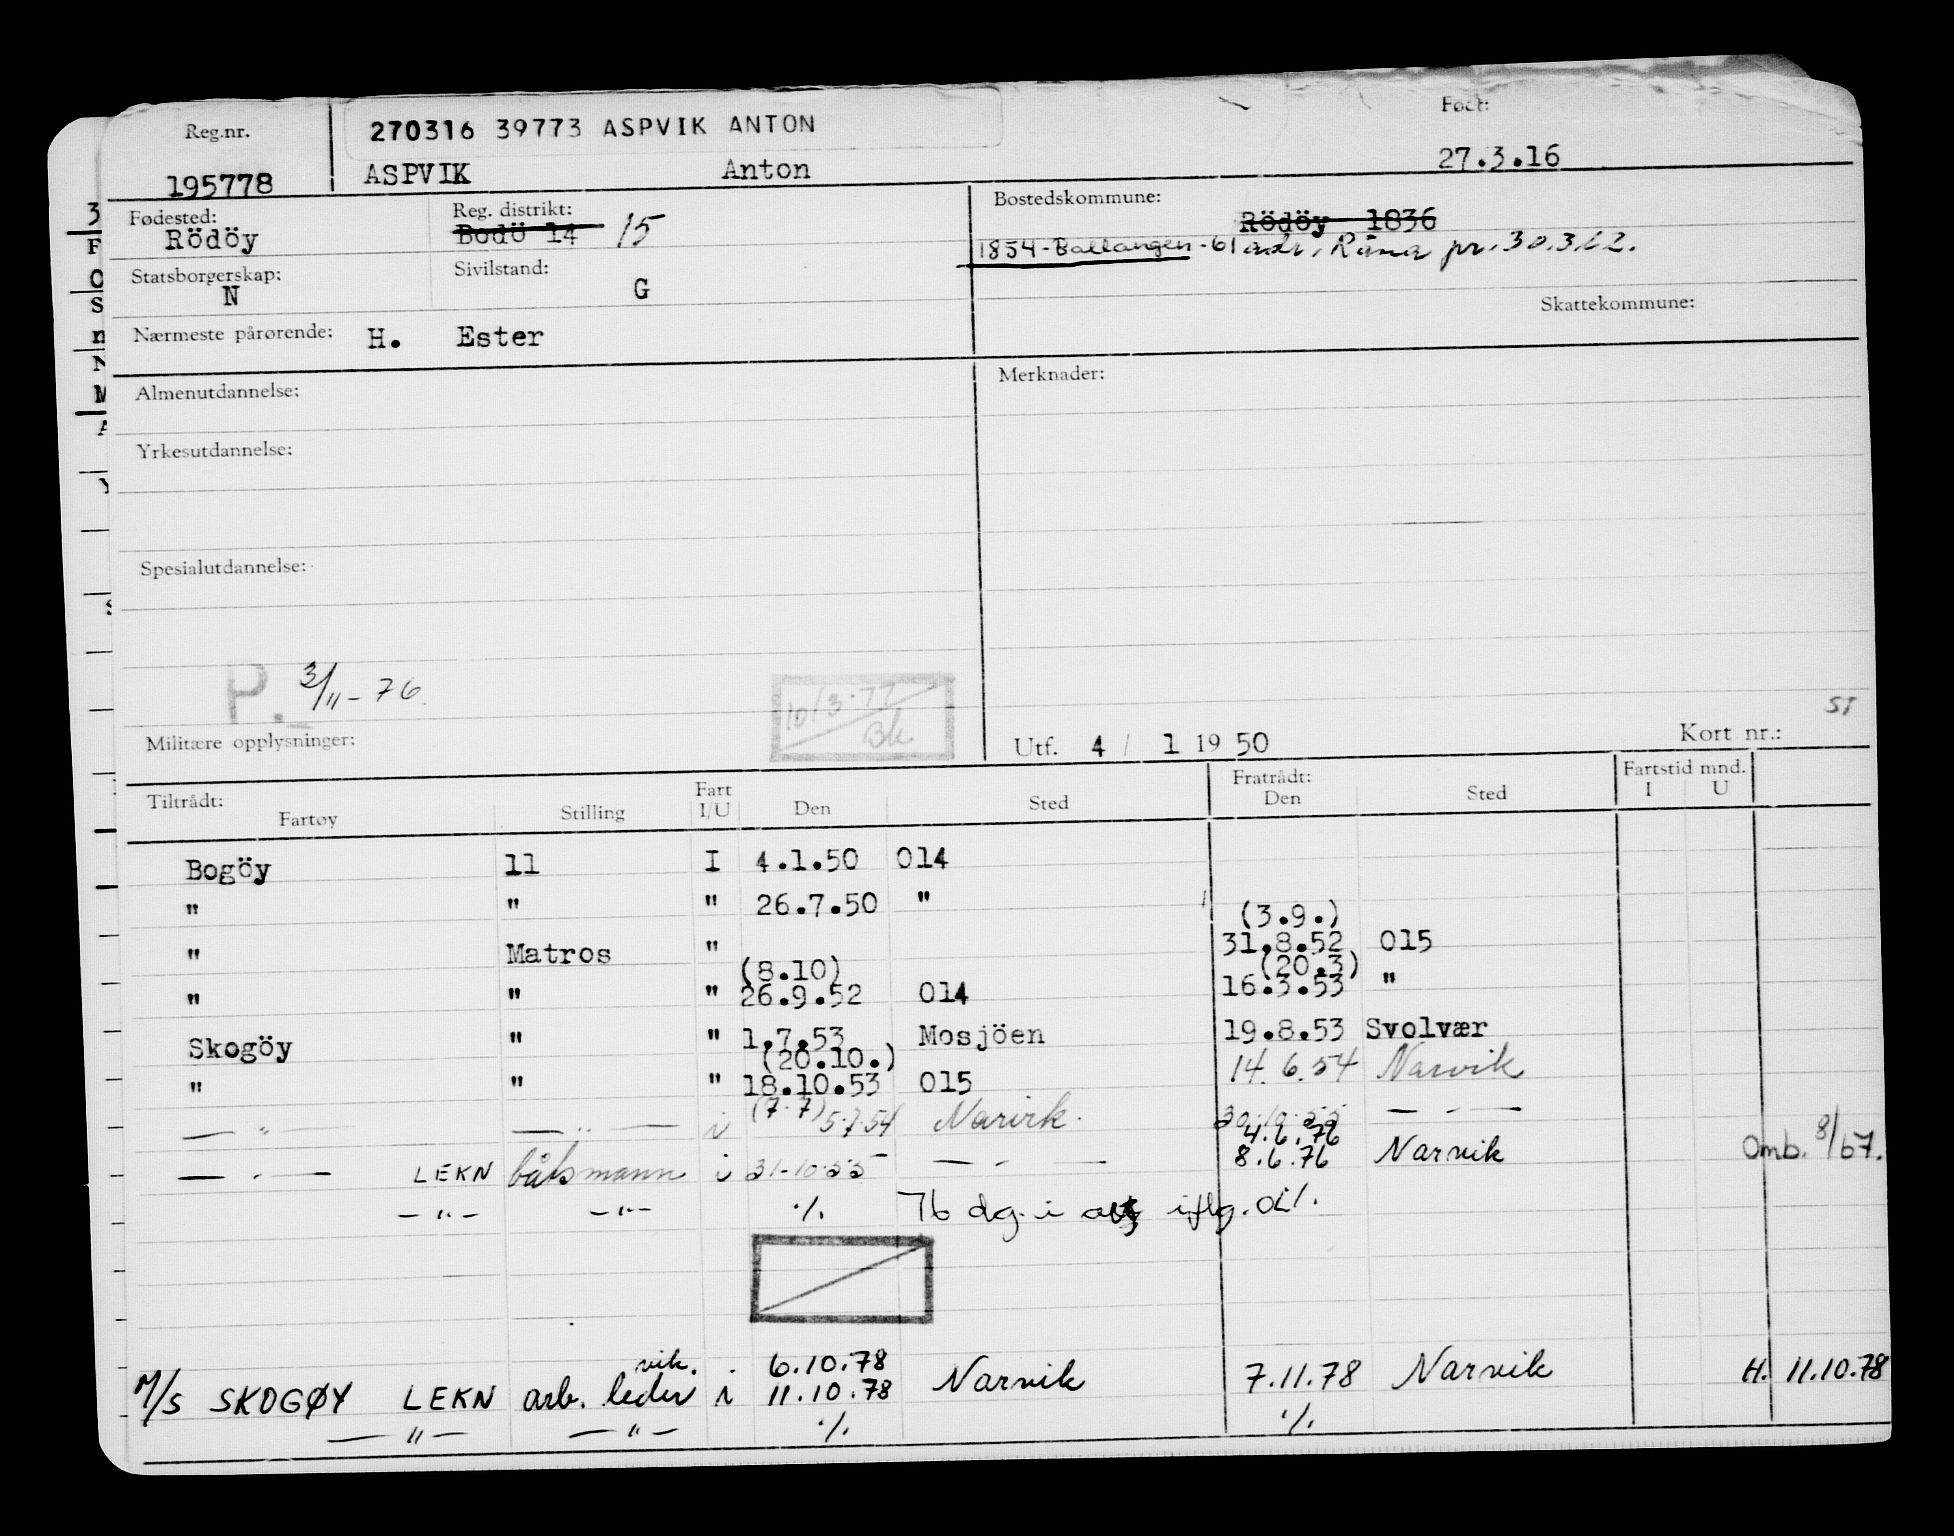 Reg.nr. 270316 39773 ASPVIK ANTON Født:
195778 ASPVIK Anton 27.3.16
Fødested: Reg. distrikt: Bostedskommune:
Rödöy Bodö 14 15 Rödöy 1836
1854-Ballangen-61 adr. Råna pr. 30.3.62.
Statsborgerskap: Sivilstand:
N G
Skattekommune:
Nærmeste pårørende: H. Ester
Almenutdannelse: Merknader:
Yrkesutdannelse:
Spesialutdannelse:
P. 3/11-76
10/3.77
Bk
ST
Militære opplysninger: Utf. 4/ 1 19 50 Kort nr.:
Tiltrådt: Fart Fratrådt: Fartstid mnd.
Fartøy Stilling I/U Den Sted Den Sted I U
Bogöy 11 I 4.1.50 014
" " " 26.7.50 "
(3.9.)
" Matros " 31.8.52 015
(8.10) (20.3)
" " " 26.9.52 014 16.3.53 "
Skogöy " " 1.7.53 Mosjöen 19.8.53 Svolvær
(20.10.)
" " " 18.10.53 015 14.6.54 Narvik
— " — — " — i (7.7) 5.7.54 Narvik. 30.10.55 — " —
4.6.76
— " — LEKN båtsmann i 31-10-55 — " — 8.6.76 Narvik Omb. 8/67.
— " — — " — ·/. 76 dg. i iflg.
vik. 6.10.78
M/S SKOGØY LEKN arb. leder i 11.10.78 Narvik 7.11.78 Narvik H. 11.10.78
— " — — " — ·/. ·/.